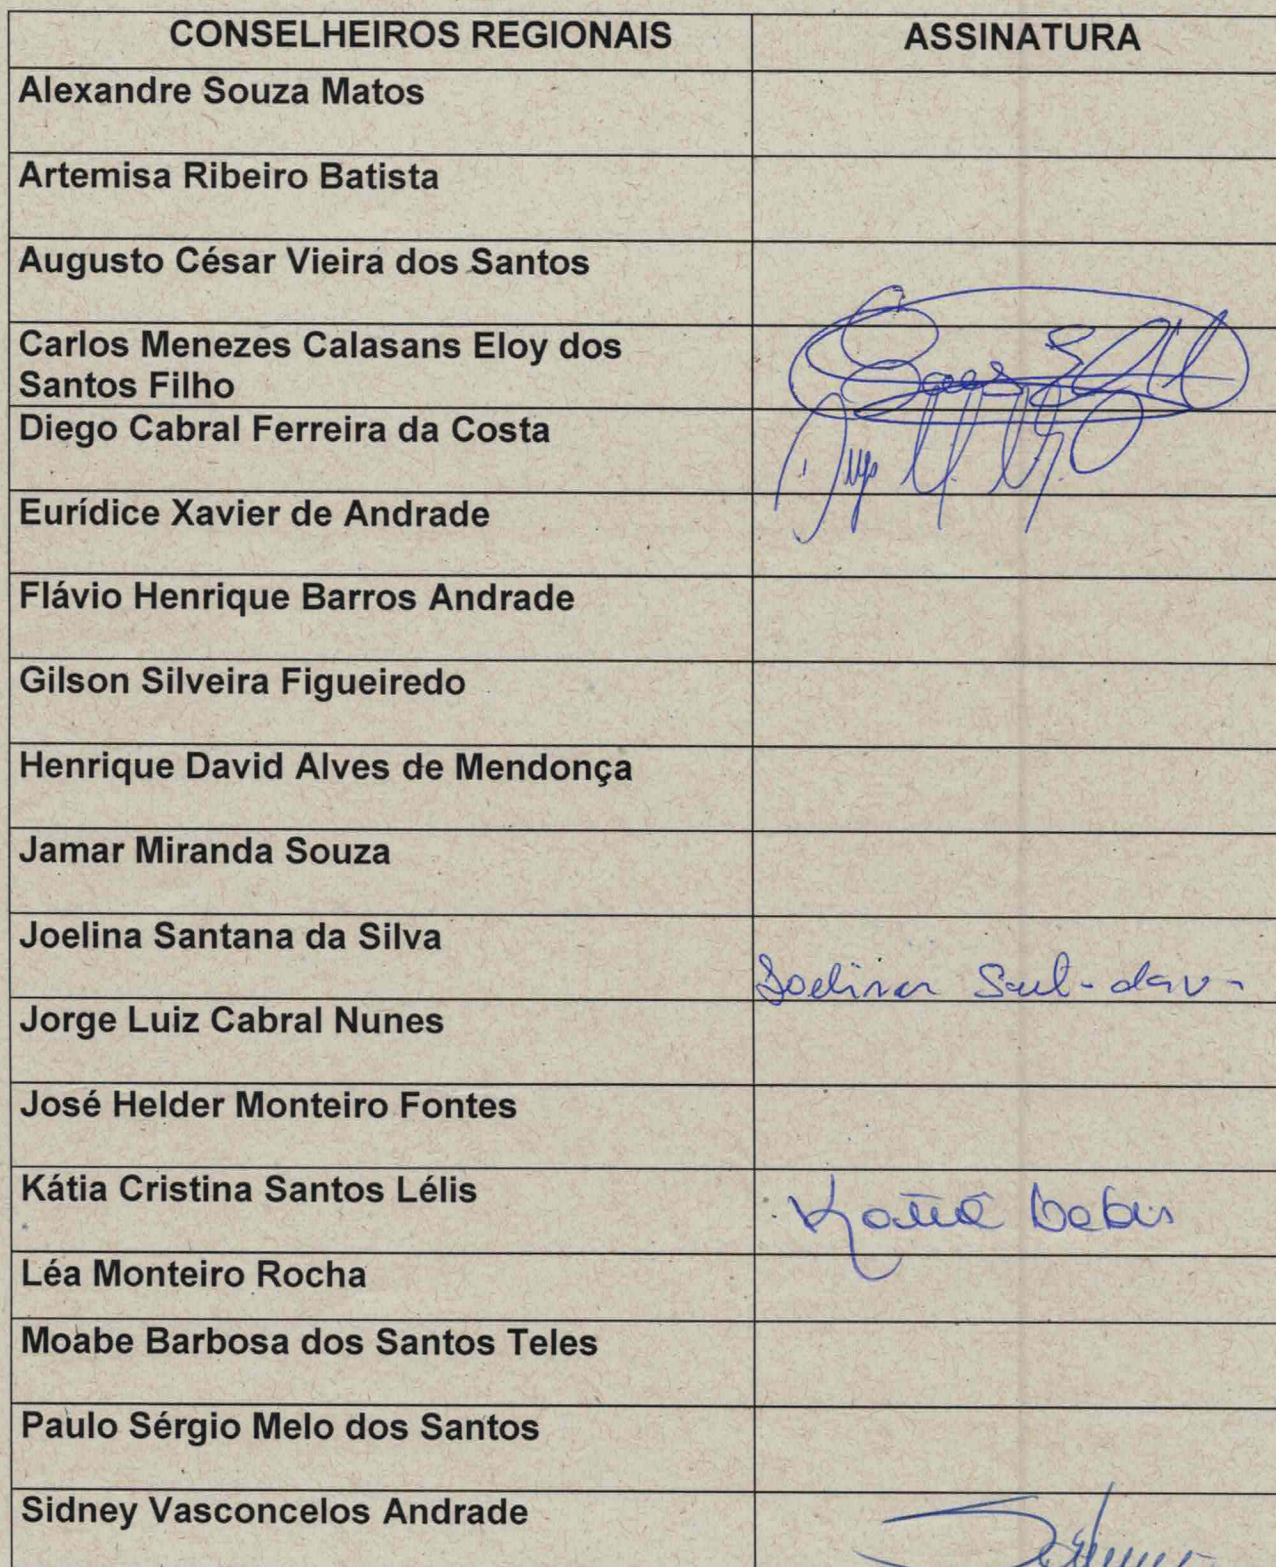 CONSELHEIROS REGIONAIS ASSINATURA
Alexandre Souza Matos
Artemisa Ribeiro Batista
Augusto César Vieira dos Santos
Carlos Menezes Calasans Eloy dos
Santos Filho
Diego Cabral Ferreira da Costa
Eurídice Xavier de Andrade
Flávio Henrique Barros Andrade
Gilson Silveira Figueiredo
Henrique David Alves de Mendonça
Jamar Miranda Souza
Joelina Santana da Silva
Joelina
Jorge Luiz Cabral Nunes
José Helder Monteiro Fontes
Kátia Cristina Santos Lélis
Kátia
Léa Monteiro Rocha
Moabe Barbosa dos Santos Teles
Paulo Sérgio Melo dos Santos
Sidney Vasconcelos Andrade